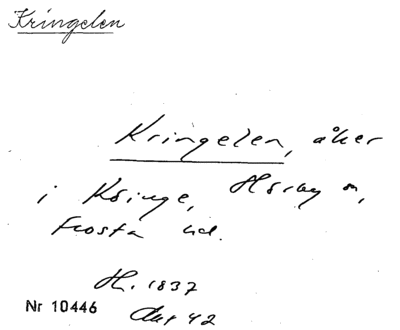 Kringelen
Kringelen, åker
i Köinge, Hörby sn,
Frosta hd.
H. 1837
Nr 10446
Akt 42